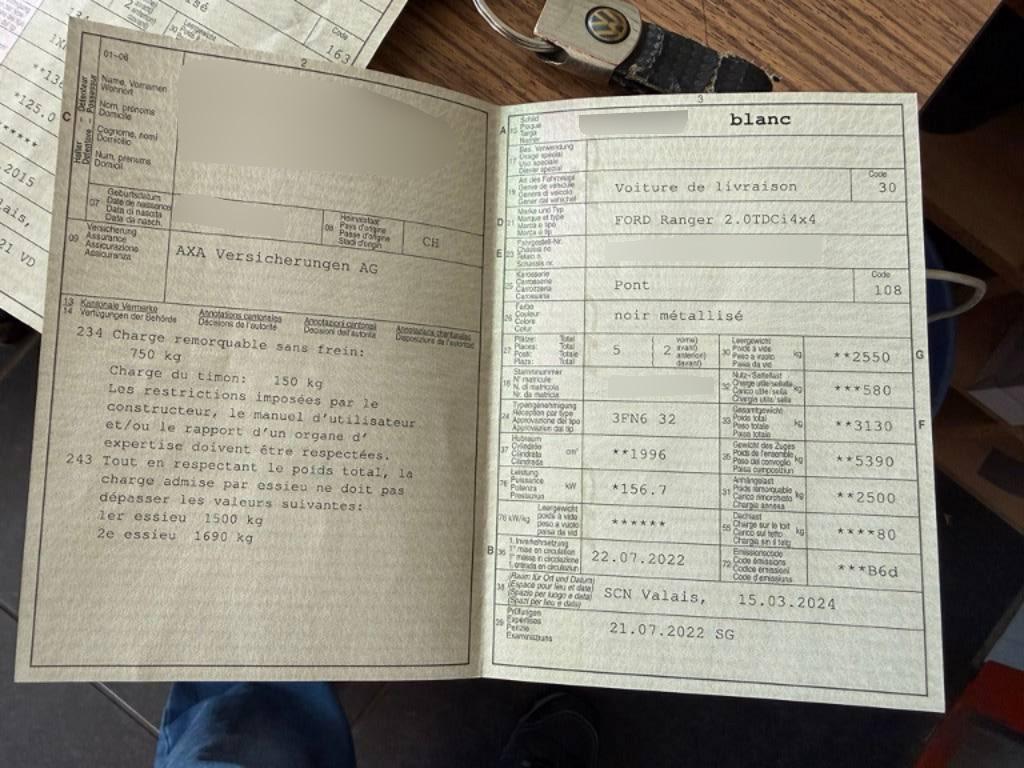 Code
163
*125.0
*****
2015
21 VD
01-06
2
C
Halter Détenteur
Detentore Possessur
Name, Vornamen
Wohnort
Nom, prénoms
Domicile
Cognome, nomi
Domicilio
Num, prenums
Domicil
07
Geburtsdatum
Date de naissance
Data di nascita
Data da nasch.
08
Heimatstaat
Pays d'origine
Paese d'origine
Stadi d'origin
CH
09
Versicherung
Assurance
Assicurazione
Assicuranza
AXA Versicherungen AG
13
14
Kantonale Vermerke
Verfügungen der Behörde
Annotations cantonales
Décisions de l'autorité
Annotazioni cantonali
Decisioni dell'autorità
Annotaziuns chantunalas
Disposiziuns da l'autoritad
234 Charge remorquable sans frein:
750 kg
Charge du timon: 150 kg
Les restrictions imposées par le
constructeur, le manuel d'utilisateur
et/ou le rapport d'un organe d'
expertise doivent être respectées.
243 Tout en respectant le poids total, la
charge admise par essieu ne doit pas
dépasser les valeurs suivantes:
1er essieu 1500 kg
2e essieu 1690 kg
3
A
15
Schild
Plaque
Targa
Numer
blanc
17
Bes. Verwendung
Usage spécial
Uso speciale
Diever spezial
19
Art des Fahrzeugs
Genre de véhicule
Genere di veicolo
Gener dal vehichel
Voiture de livraison
Code
30
D
21
Marke und Typ
Marque et type
Marca e tipo
Marca e tip
FORD Ranger 2.0TDCi4x4
E
23
Fahrgestell-Nr.
Châssis no
Telaio n.
Schassis nr.
25
Karosserie
Carrosserie
Carrozzeria
Carossaria
Pont
Code
108
26
Farbe
Couleur
Colore
Colur
noir métallisé
27
Plätze: Total
Places: Total
Posti: Totale
Plazs: Total
5
2
(vorne)
avant)
anteriori)
davant)
30
Leergewicht
Poids à vide
Peso a vuoto
Paisa da vid
kg
**2550
G
18
Stammnummer
N° matricule
N. di matricola
Nr. da matricla
32
Nutz-/Sattellast
Charge utile/sellette
Carico utile/sella
Chargia utila/sella
kg
***580
24
Typengenehmigung
Réception par type
Approvazione del tipo
Approvaziun dal tip
3FN6 32
33
Gesamtgewicht
Poids total
Peso totale
Paisa totala
kg
**3130
F
37
Hubraum
Cylindrée
Cilindrata
Cilindrada
cm³
**1996
35
Gewicht des Zuges
Poids de l'ensemble
Peso del convoglio
Paisa cumposiziun
kg
**5390
76
Leistung
Puissance
Potenza
Prestaziun
kW
*156.7
31
Anhängelast
Poids remorquable
Carico rimorchiato
Chargia annexa
kg
**2500
78 kW/kg
Leergewicht
poids à vide
peso a vuoto
paisa da vid
******
55
Dachlast
Charge sur le toit
Carico sul tetto
Chargia sin il tetg
kg
****80
B
36
1. Inverkehrsetzung
1re mise en circulation
1a messa in circolazione
1. entrada en circulaziun
22.07.2022
72
Emissionscode
Code émissions
Codice emissioni
Code d'emissiuns
***B6d
38
(Raum für Ort und Datum)
(Espace pour lieu et date)
(Spazio per luogo e data)
(Spazi per lieu e data)
SCN Valais, 15.03.2024
39
Prüfungen
Expertises
Perizie
Examinaziuns
21.07.2022 SG